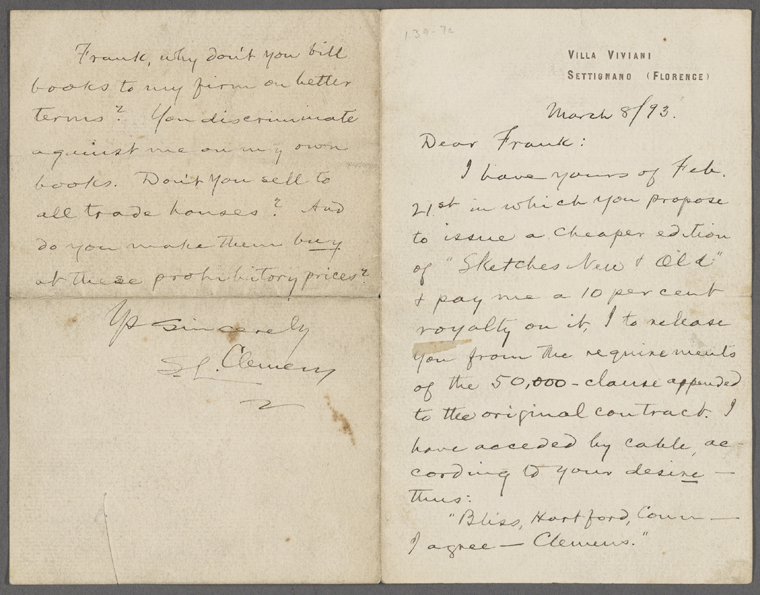 139-72
VILLA VIVIANI
SETTIGNANO (FLORENCE)
March 8/93.
Dear Frank:
I have yours of Feb.
21st in which you propose
to issue a cheaper edition
of "Sketches New & Old"
& pay me a 10 per cent
royalty on it, I to release
you from the requirements
of the 50,000-clause appended
to the original contract. I
have acceded by cable, ac-
cording to your desire —
thus:
"Bliss, Hartford, Conn —
I agree — Clemens."
Frank, why don't you bill
books to my firm on better
terms? You discriminate
against me on my own
books. Don't you sell to
all trade houses? And
do you make them buy
at these prohibitory prices?
Ys sincerely
S.L. Clemens